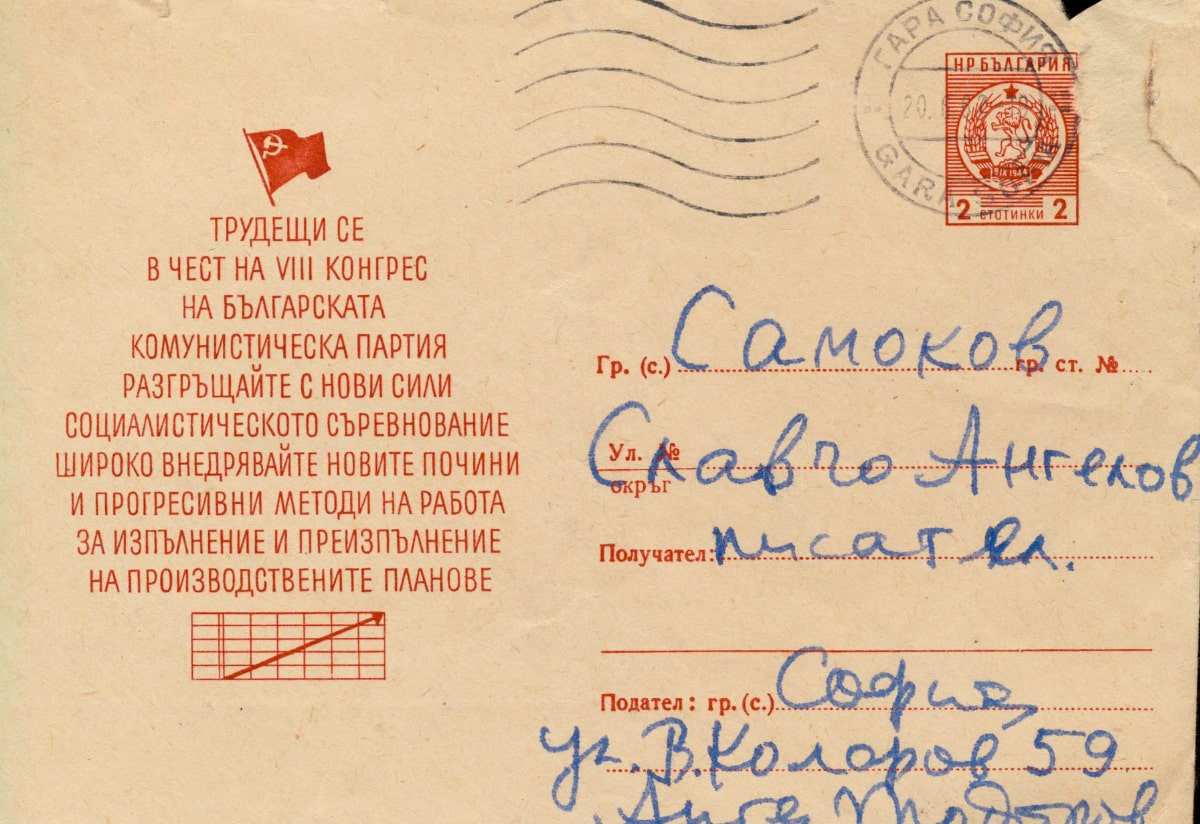 ГАРА СОФИЯ
20.
GARA
НР БЪЛГАРИЯ
9 IX 1944
2 СТОТИНКИ 2
ТРУДЕЩИ СЕ
В ЧЕСТ НА VIII КОНГРЕС
НА БЪЛГАРСКАТА
КОМУНИСТИЧЕСКА ПАРТИЯ
РАЗГРЪЩАЙТЕ С НОВИ СИЛИ
СОЦИАЛИСТИЧЕСКОТО СЪРЕВНОВАНИЕ
ШИРОКО ВНЕДРЯВАЙТЕ НОВИТЕ ПОЧИНИ
И ПРОГРЕСИВНИ МЕТОДИ НА РАБОТА
ЗА ИЗПЪЛНЕНИЕ И ПРЕИЗПЪЛНЕНИЕ
НА ПРОИЗВОДСТВЕНИТЕ ПЛАНОВЕ
Гр. (с.) Самоков гр. ст. №
Ул. № Славчо Ангелов
окръг
Получател: писател.
Подател: гр. (с.) София,
ул. В. Коларов 59
Ангел Тодоров